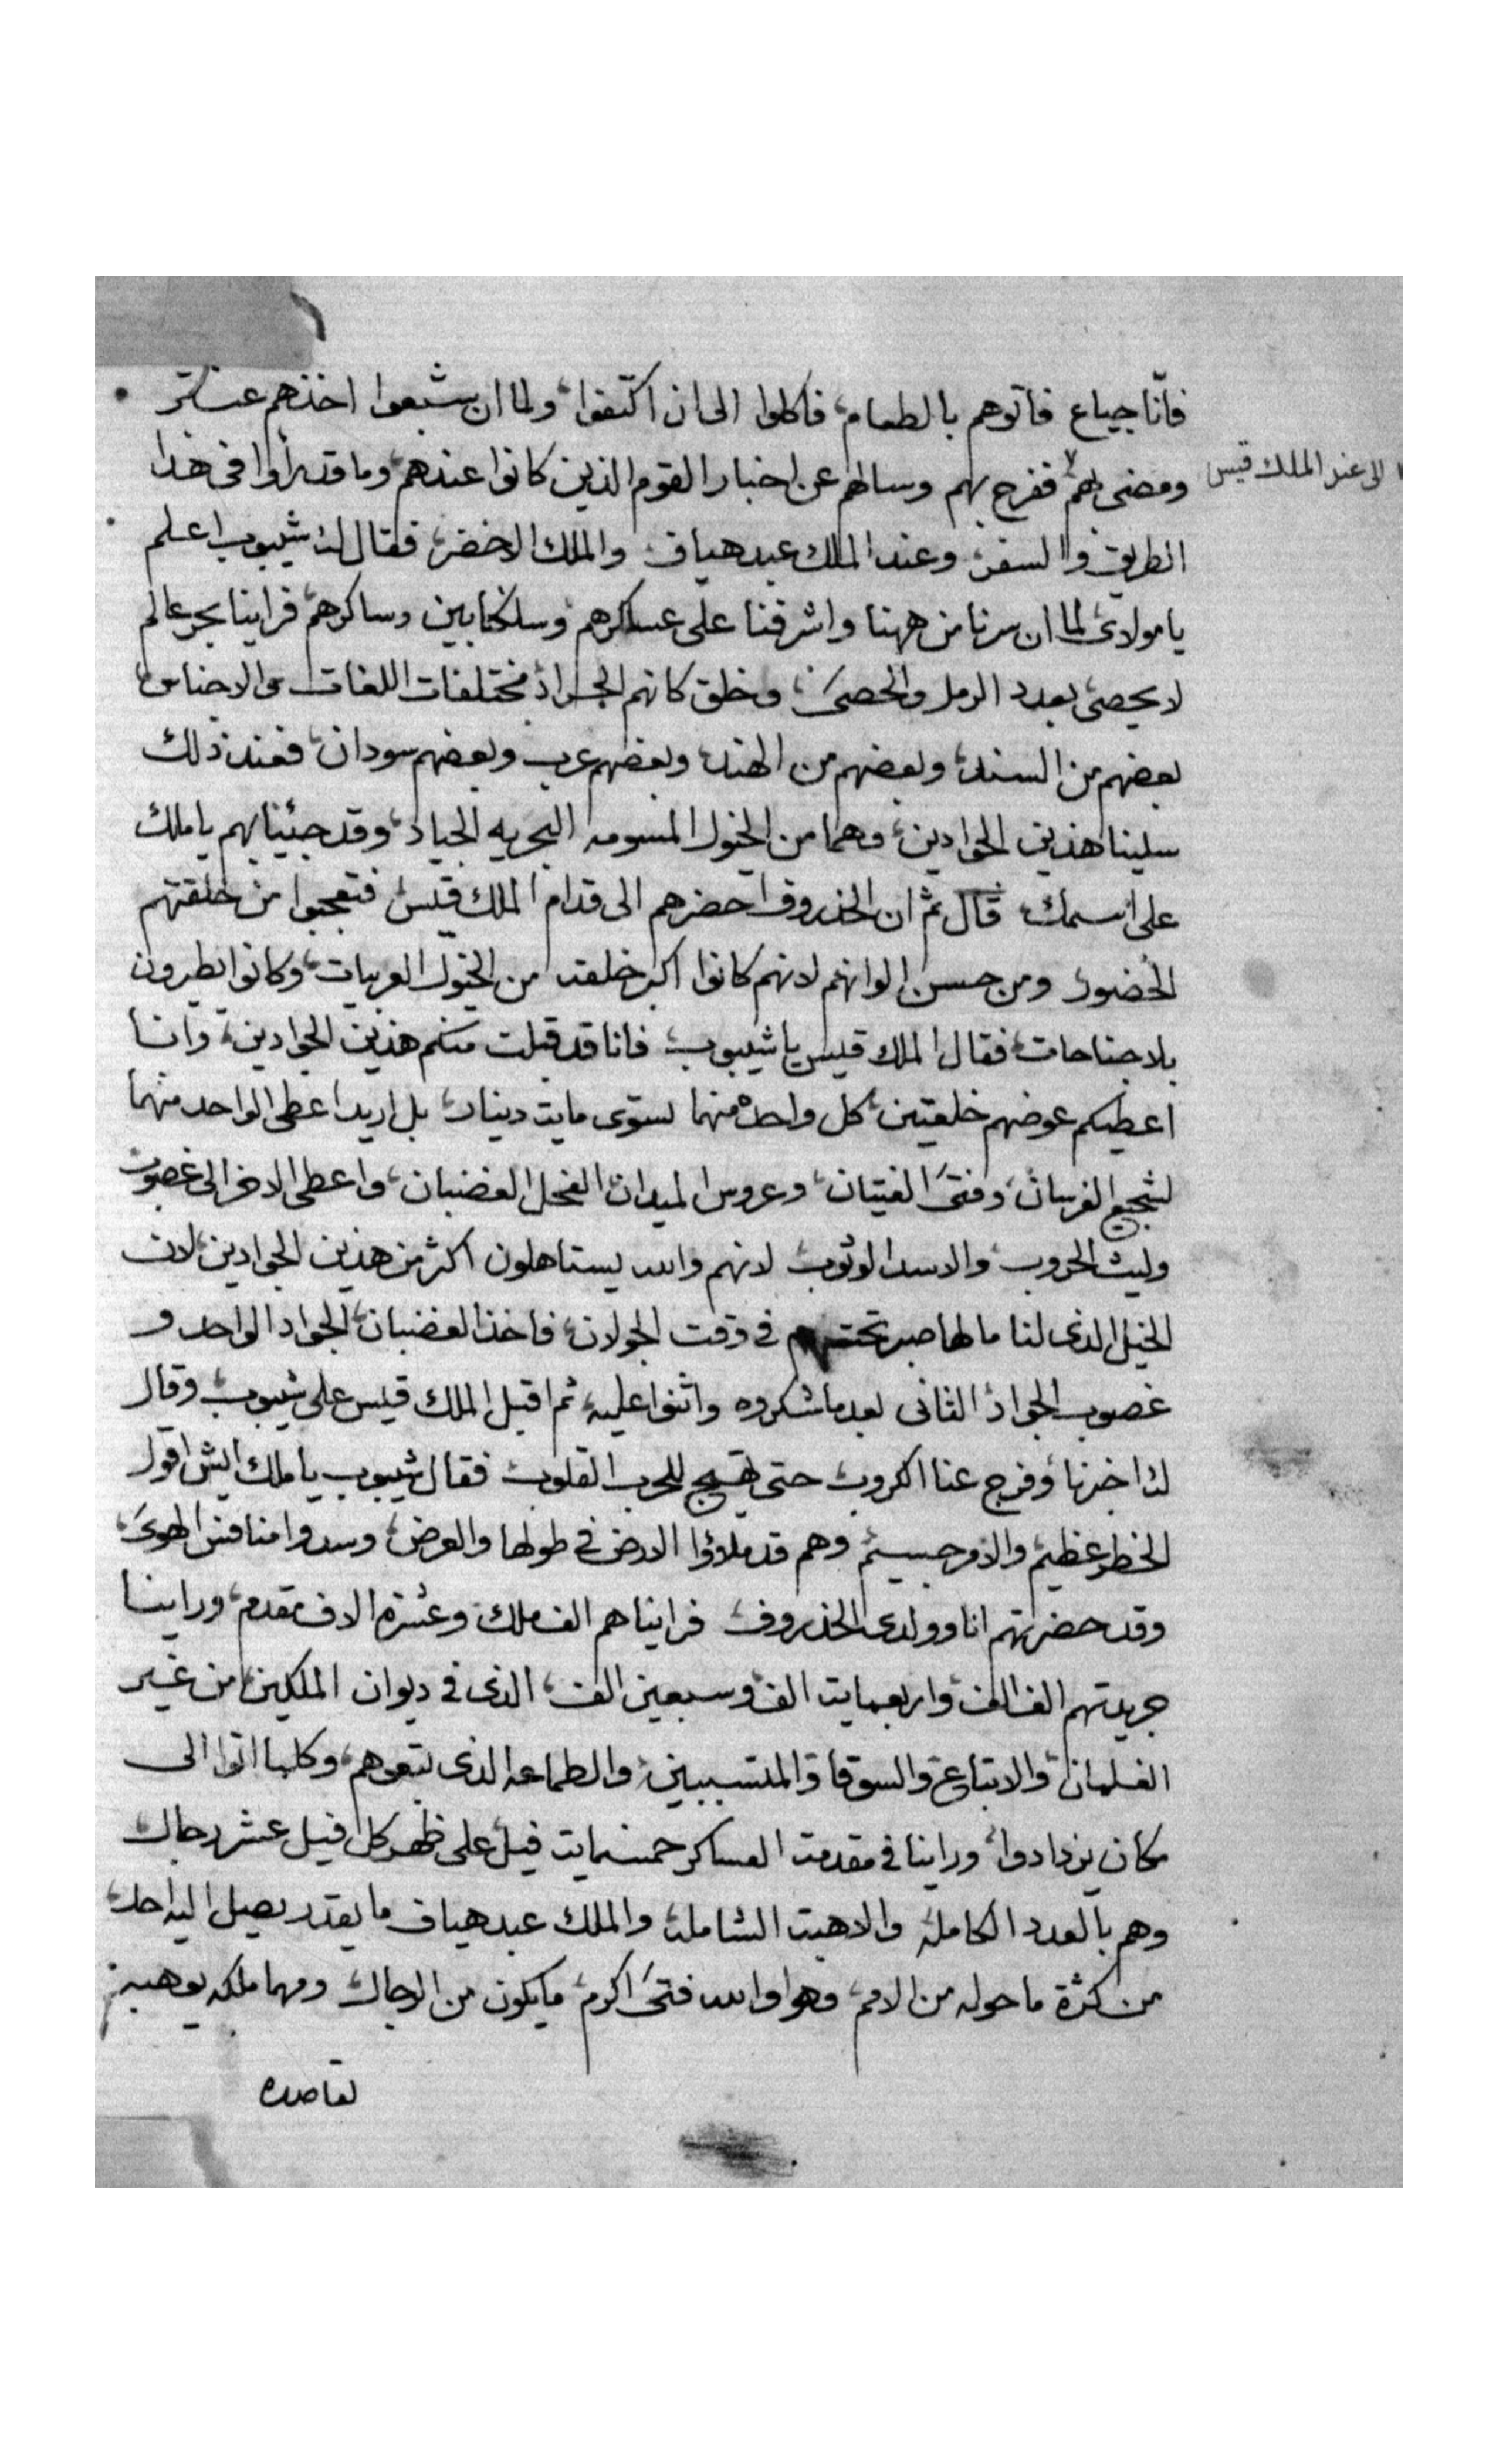 فانّا جياع فاتوهم بالطعام، فاكلوا الى ان اكتفوا، ولما ان شبعوا اخذهم عنتر
ومضى بهم ففرح بهم وسالهم عن اخبار القوم الذين كانوا عندهم، وما قد رأوا فى هذا
الى عند الملك قيس
الطريق والسفر، وعند الملك عبد هياف، والملك الاخضر، فقال له شيبوب اعلم
يا مولاى لما ان سرنا من ههنا واشرفنا على عساكرهم وسلكنا بين وساكرهم، فراينا بحر عالم
لا يحصى بعدد الرمل والحصىَ، وخلق كانهم الجراد مختلفات اللغات والاجناس،
بعضهم من السند، وبعضهم من الهند، وبعضهم عرب وبعضهم سودان، فعند ذلك
سلينا هذين الجوادين، وهما من الخيول المسومه البحريه الجياد، وقد جيئنا بهم يا ملك
على اسمك، قال ثم ان الخذروف احضرهم الى قدام الملك قيس فتعجبوا من خلقتهم
الحضور ومن حسن الوانهم لانهم كانوا اكبر خلقه من الخيول العربيات، وكانوا يطيرون
بلا جناحات، فقال الملك قيس يا شيبوب، فانا قد قبلت منكم هذين الجوادين، وانا
اعطيكم عوضهم خلعتين، كل واحده منهما تسوى مايت دينار، بل اريد اعطى الواحد منهما
لشجيع الفرسان، وفتىَ الفتيان، وعروس الميدان، الفحل الغضبان، واعطى الاخر الى غصوب
وليث الحروب، والاسد الوثوب، لانهم والله يستاهلون اكثر من هذين الجوادين، لان
الخيل الذى لنا ما لها صبر تحتهم فى وقت الجولان، فاخذ الغضبان، الجواد الواحد و
غصوب الجواد الثانى بعد ما شكروه واثنوا عليه، ثم اقبل الملك قيس على شيبوب، وقال
له اخبرنا، وفرج عنا الكروب، حتى تهيج للحرب القلوب، فقال شيبوب يا ملك ايش اقول
الخطر عظيم، والامر جسيم، وهم قد ملاؤا الارض فى طولها والعرض، وسدوا منافس الهوىَ،
وقد حضرتهم انا وولدى الخذروف، فراينا هم الف ملك، وعشرة الاف مقدم، وراينا
جريدتهم الف الف، واربعمايت الف، وسبعين الف، الذى فى ديوان الملكين، من غير
الغلمان، والاتباع، والسوقا والمتسببين، والطماعه الذى تبعوهم، وكلما اتوا الى
مكان يزدادوا، وراينا فى مقدمت العساكر خمسمايت فيل، على ظهر كل فيل عشر رجال،
وهم بالعدد الكاملة والاهبت الشامله، والملك عبد هياف ما يقدر يصل اليه احد،
من كثرة ما حوله من الامم، وهوا والله فتىَ اكرم، ما يكون من الرجال، ومهما ملكه يوهبه،
لقاصده